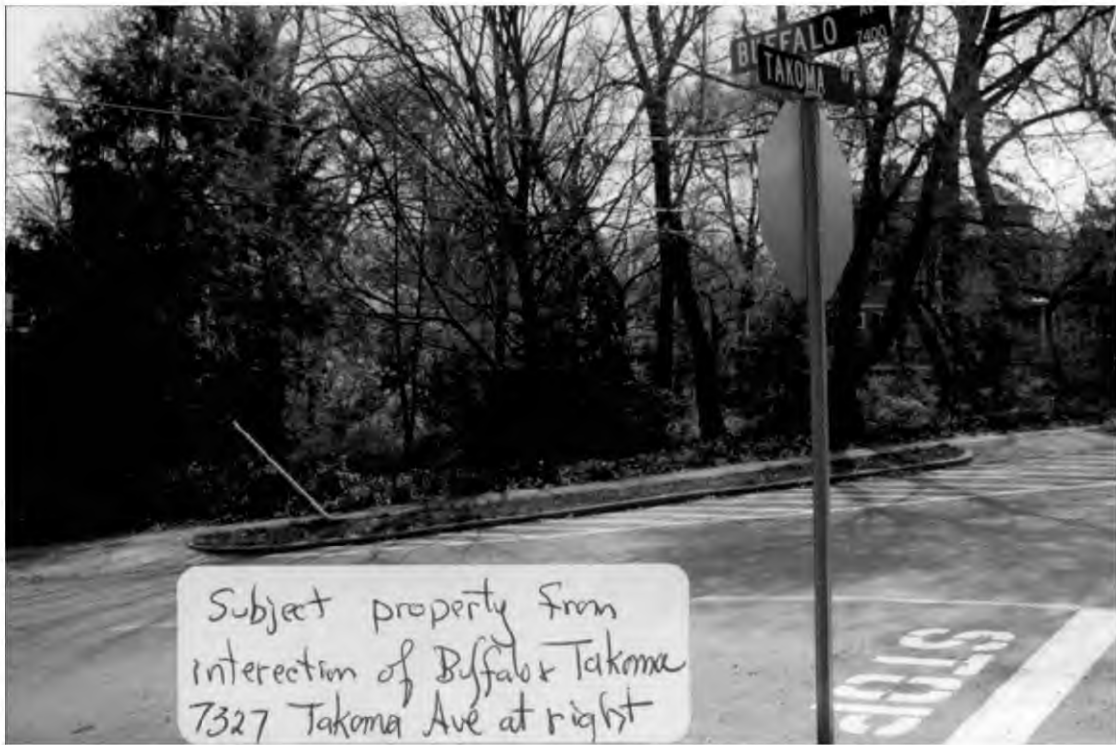 BUFFALO AV
7400
TAKOMA
STOP
Subject property from
interection of Buffalo & Takoma
7327 Takoma Ave at right